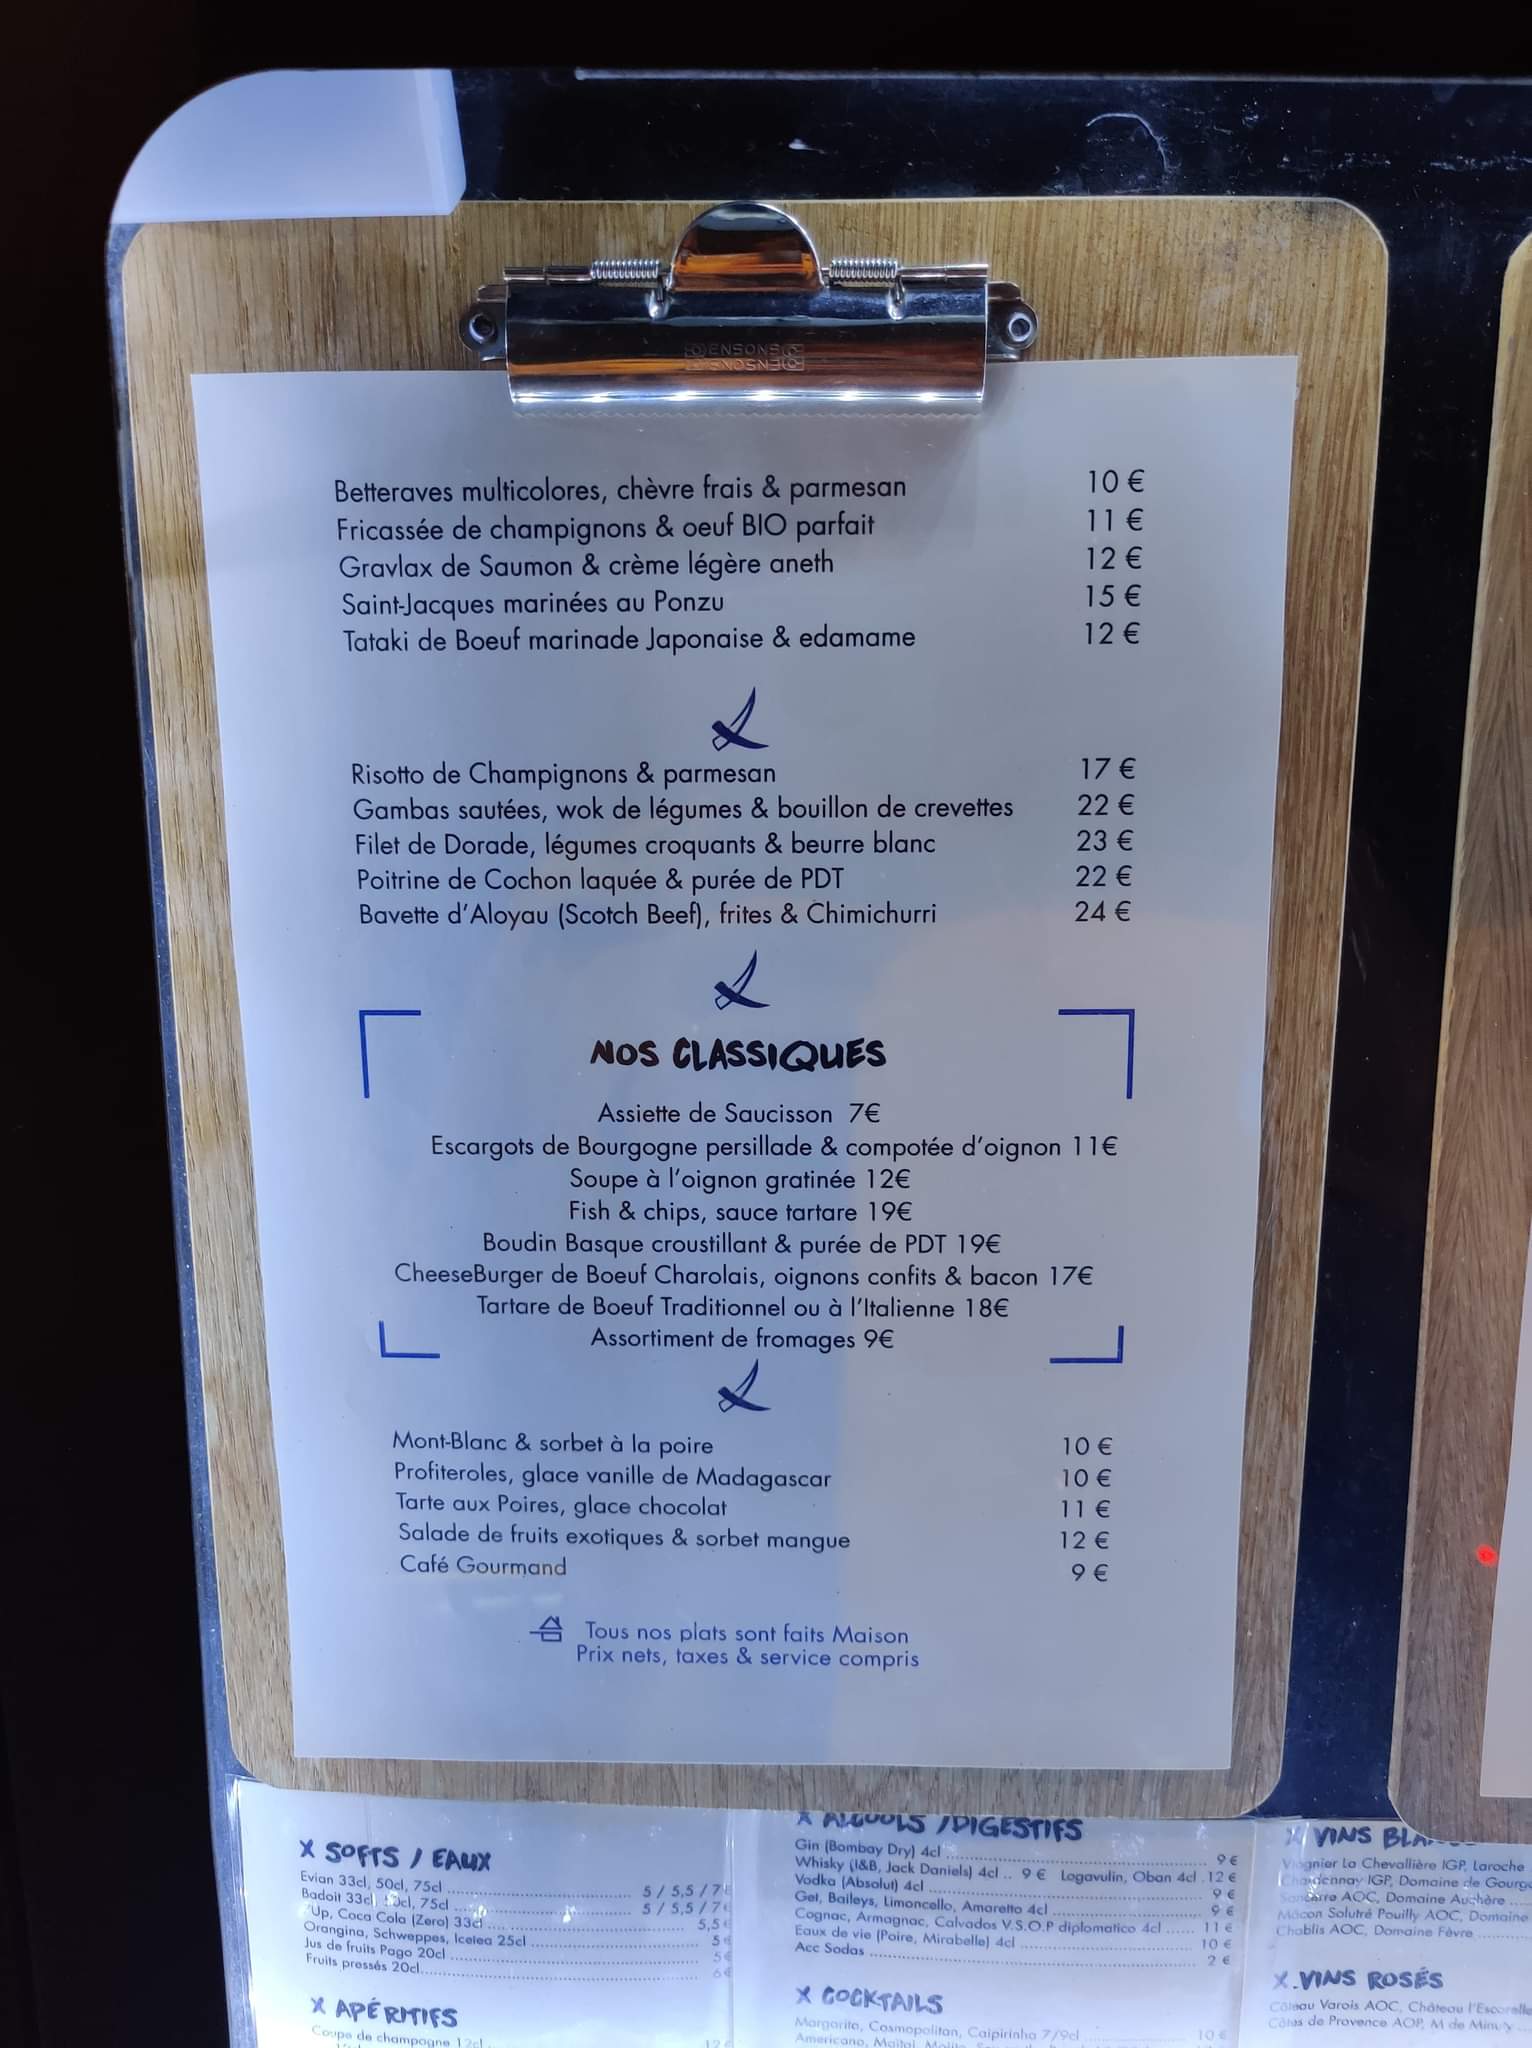 ENSONS
Betteraves multicolores, chèvre frais & parmesan 10 €
Fricassée de champignons & oeuf BIO parfait 11 €
Gravlax de Saumon & crème légère aneth 12 €
Saint-Jacques marinées au Ponzu 15 €
Tataki de Boeuf marinade Japonaise & edamame 12 €
Risotto de Champignons & parmesan 17 €
Gambas sautées, wok de légumes & bouillon de crevettes 22 €
Filet de Dorade, légumes croquants & beurre blanc 23 €
Poitrine de Cochon laquée & purée de PDT 22 €
Bavette d'Aloyau (Scotch Beef), frites & Chimichurri 24 €
NOS CLASSIQUES
Assiette de Saucisson 7€
Escargots de Bourgogne persillade & compotée d'oignon 11€
Soupe à l'oignon gratinée 12€
Fish & chips, sauce tartare 19€
Boudin Basque croustillant & purée de PDT 19€
CheeseBurger de Boeuf Charolais, oignons confits & bacon 17€
Tartare de Boeuf Traditionnel ou à l'Italienne 18€
Assortiment de fromages 9€
Mont-Blanc & sorbet à la poire 10 €
Profiteroles, glace vanille de Madagascar 10 €
Tarte aux Poires, glace chocolat 11 €
Salade de fruits exotiques & sorbet mangue 12 €
Café Gourmand 9 €
Tous nos plats sont faits Maison
Prix nets, taxes & service compris
X SOFTS / EAUX
Evian 33cl, 50cl, 75cl 5 / 5,5 / 7€
Badoit 33cl, 50cl, 75cl 5 / 5,5 / 7€
7Up, Coca Cola (Zero) 33cl 5,5€
Orangina, Schweppes, Icetea 25cl 5€
Jus de fruits Pago 20cl 5€
Fruits pressés 20cl 6€
X APÉRITIFS
Coupe de champagne 12cl 12€
X ALCOOLS / DIGESTIFS
Gin (Bombay Dry) 4cl 9 €
Whisky (J&B, Jack Daniels) 4cl .. 9 € Lagavulin, Oban 4cl .12 €
Vodka (Absolut) 4cl 9 €
Get, Baileys, Limoncello, Amaretto 4cl 9 €
Cognac, Armagnac, Calvados V.S.O.P diplomatico 4cl 11 €
Eaux de vie (Poire, Mirabelle) 4cl 10 €
Acc Sodas 2 €
X COCKTAILS
Margarita, Cosmopolitan, Caipirinha 7/9cl 10 €
Americano, Maïtaï, Mojito
X VINS
Viognier La Chevallière IGP, Laroche
Chardennay IGP, Domaine de
Sancerre AOC, Domaine Auchère
Mâcon Solutré Pouilly AOC, Domaine
Chablis AOC, Domaine Fèvre
X VINS ROSÉS
Côteau Varois AOC, Château
Côtes de Provence AOP, M de Minuty